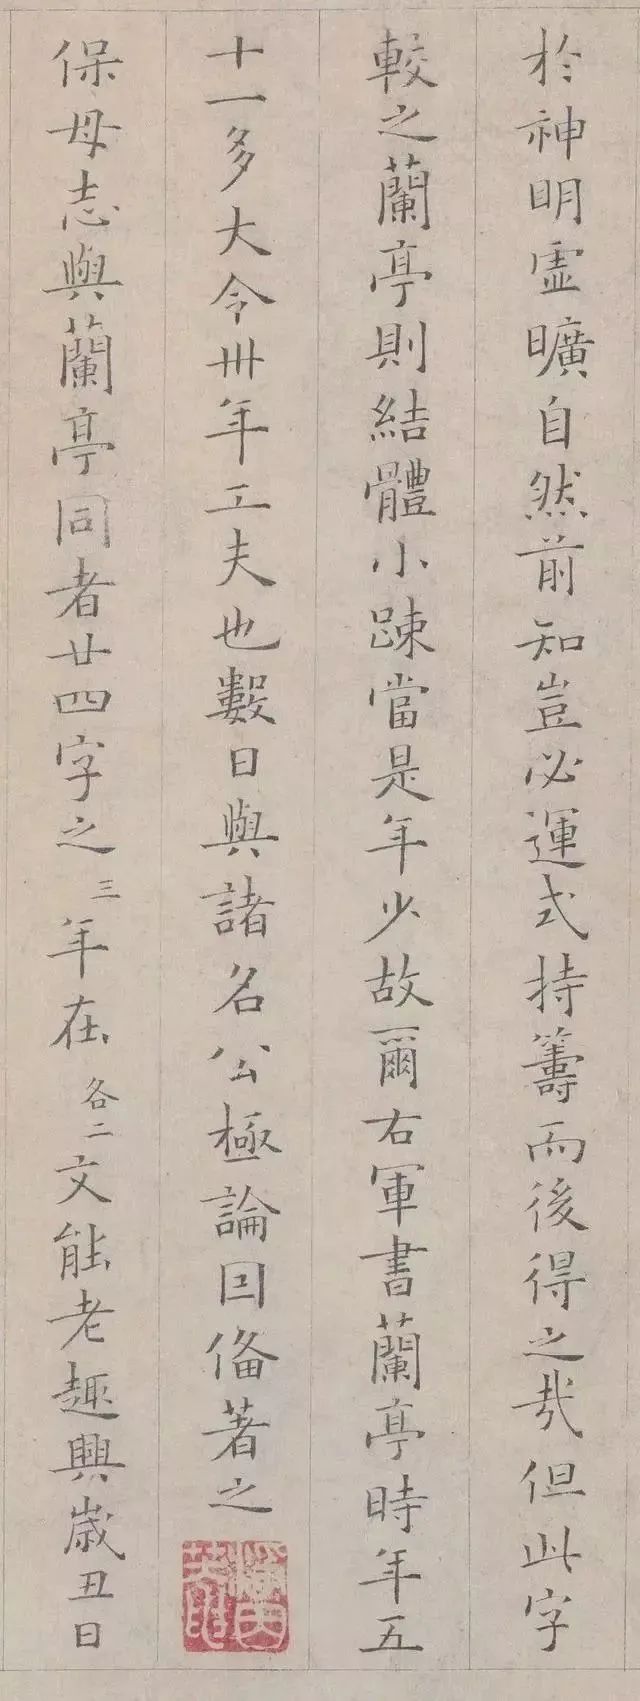 於神明虛曠自然前知豈必運式持籌而後得之哉但此字
較之蘭亭則結體小踈當是年少故爾右軍書蘭亭時年五
十一多大令卅年工夫也數日與諸名公極論因俻著之
保母志與蘭亭同者廿四字之三年在各二文能老趣興歲丑日